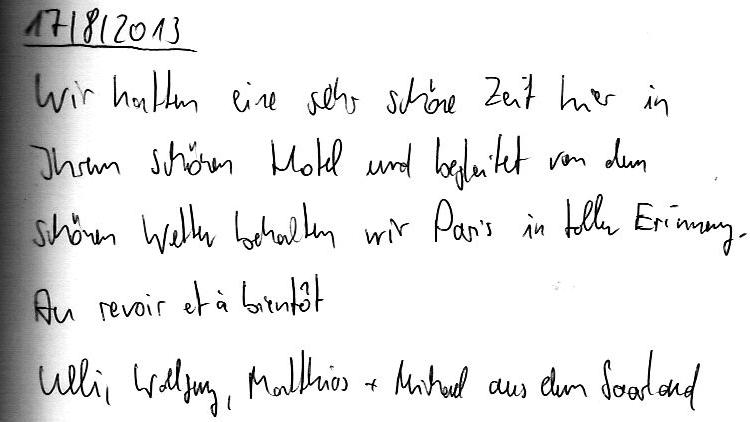 17/8/2013
Wir hatten eine sehr schöne Zeit hier in
Ihrem schönen Hotel und begleitet von dem
schönen Wetter behalten wir Paris in toller Erinnerung.
Au revoir et à bientôt
Ulli, Wolfgang, Matthias + Michael aus dem Saarland